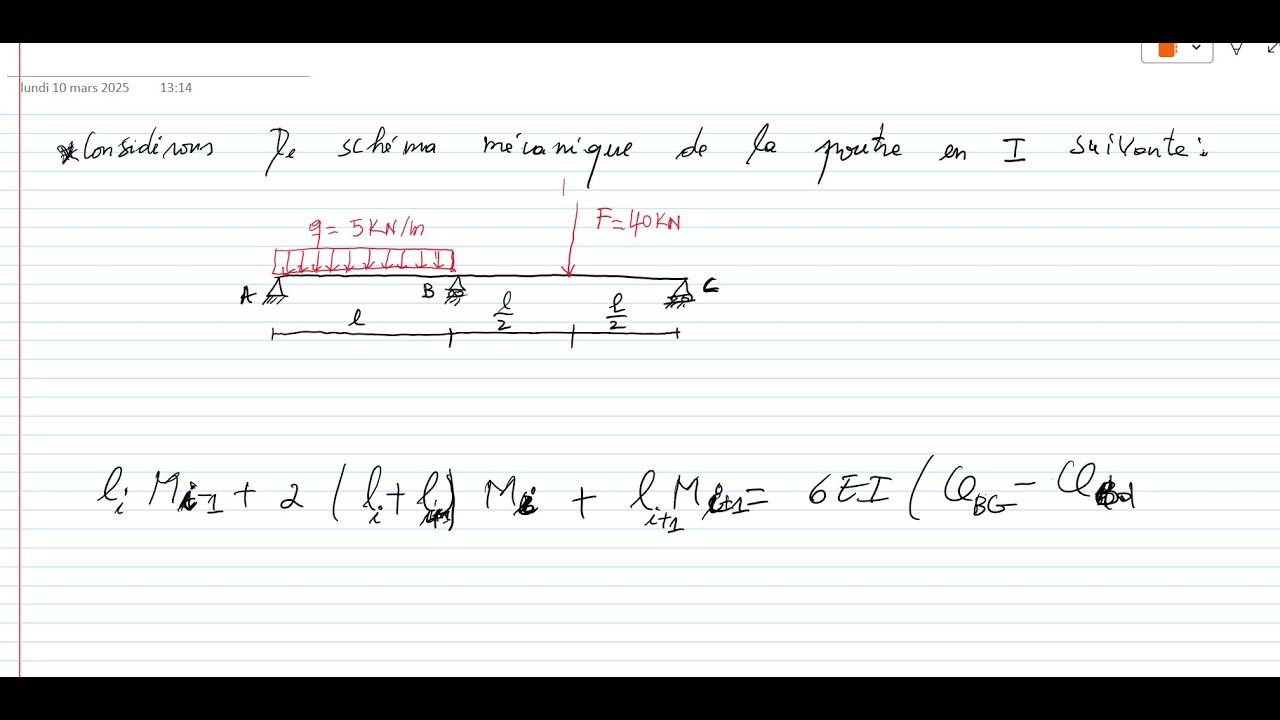 lundi 10 mars 2025 13:14
Considérons le schéma mécanique de la poutre en I suivante:
q = 5KN/m F=40KN
A B C
l l/2 l/2
l_i M_{i-1} + 2 (l_i + l_{i+1}) M_i + l_{i+1} M_{i+1} = 6EI (φ_{BG} - φ